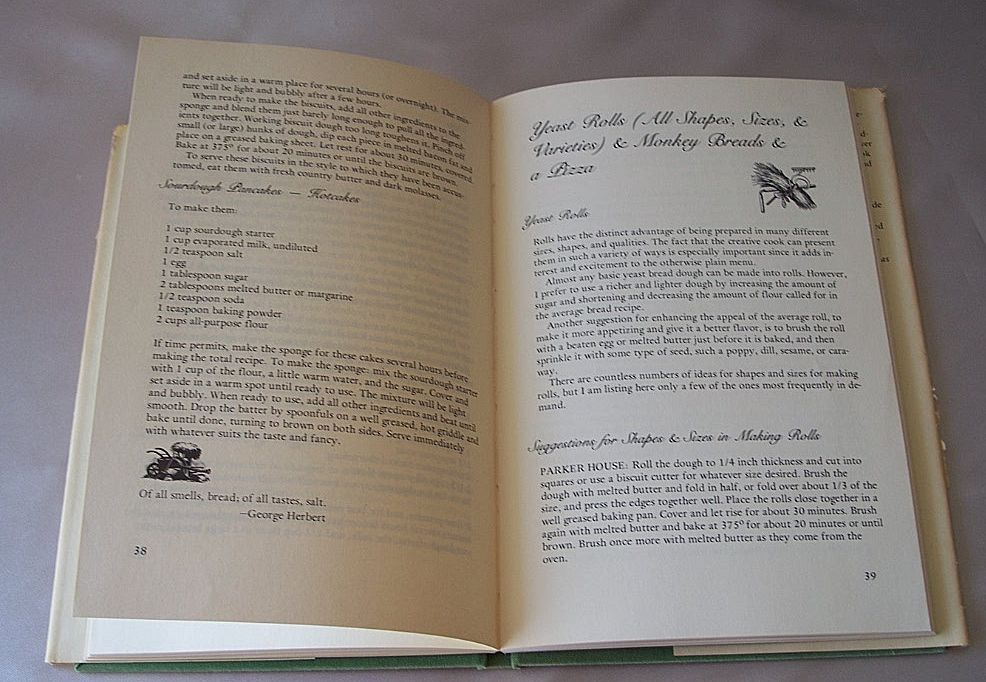 and set aside in a warm place for several hours (or overnight). The mix-
ture will be light and bubbly after a few hours.
When ready to make the biscuits, add all other ingredients to the
sponge and blend them just barely long enough to pull all the ingred-
ients together. Working biscuit dough too long toughens it. Pinch off
small (or large) hunks of dough, dip each piece in melted bacon fat and
place on a greased baking sheet. Let rest for about 30 minutes, covered.
Bake at 375° for about 20 minutes or until the biscuits are brown.
To serve these biscuits in the style to which they have been accus-
tomed, eat them with fresh country butter and dark molasses.
Sourdough Pancakes — Hotcakes
To make them:
1 cup sourdough starter
1 cup evaporated milk, undiluted
1/2 teaspoon salt
1 egg
1 tablespoon sugar
2 tablespoons melted butter or margarine
1/2 teaspoon soda
1 teaspoon baking powder
2 cups all-purpose flour
If time permits, make the sponge for these cakes several hours before
making the total recipe. To make the sponge: mix the sourdough starter
with 1 cup of the flour, a little warm water, and the sugar. Cover and
set aside in a warm spot until ready to use. The mixture will be light
and bubbly. When ready to use, add all other ingredients and beat until
smooth. Drop the batter by spoonfuls on a well greased, hot griddle and
bake until done, turning to brown on both sides. Serve immediately
with whatever suits the taste and fancy.
Of all smells, bread; of all tastes, salt.
—George Herbert
38
Yeast Rolls (All Shapes, Sizes, &
Varieties) & Monkey Breads &
a Pizza
Yeast Rolls
Rolls have the distinct advantage of being prepared in many different
sizes, shapes, and qualities. The fact that the creative cook can present
them in such a variety of ways is especially important since it adds in-
terest and excitement to the otherwise plain menu.
Almost any basic yeast bread dough can be made into rolls. However,
I prefer to use a richer and lighter dough by increasing the amount of
sugar and shortening and decreasing the amount of flour called for in
the average bread recipe.
Another suggestion for enhancing the appeal of the average roll, to
make it more appetizing and give it a better flavor, is to brush the roll
with a beaten egg or melted butter just before it is baked, and then
sprinkle it with some type of seed, such a poppy, dill, sesame, or cara-
way.
There are countless numbers of ideas for shapes and sizes for making
rolls, but I am listing here only a few of the ones most frequently in de-
mand.
Suggestions for Shapes & Sizes in Making Rolls
PARKER HOUSE: Roll the dough to 1/4 inch thickness and cut into
squares or use a biscuit cutter for whatever size desired. Brush the
dough with melted butter and fold in half, or fold over about 1/3 of the
size, and press the edges together well. Place the rolls close together in a
well greased baking pan. Cover and let rise for about 30 minutes. Brush
again with melted butter and bake at 375° for about 20 minutes or until
brown. Brush once more with melted butter as they come from the
oven.
39